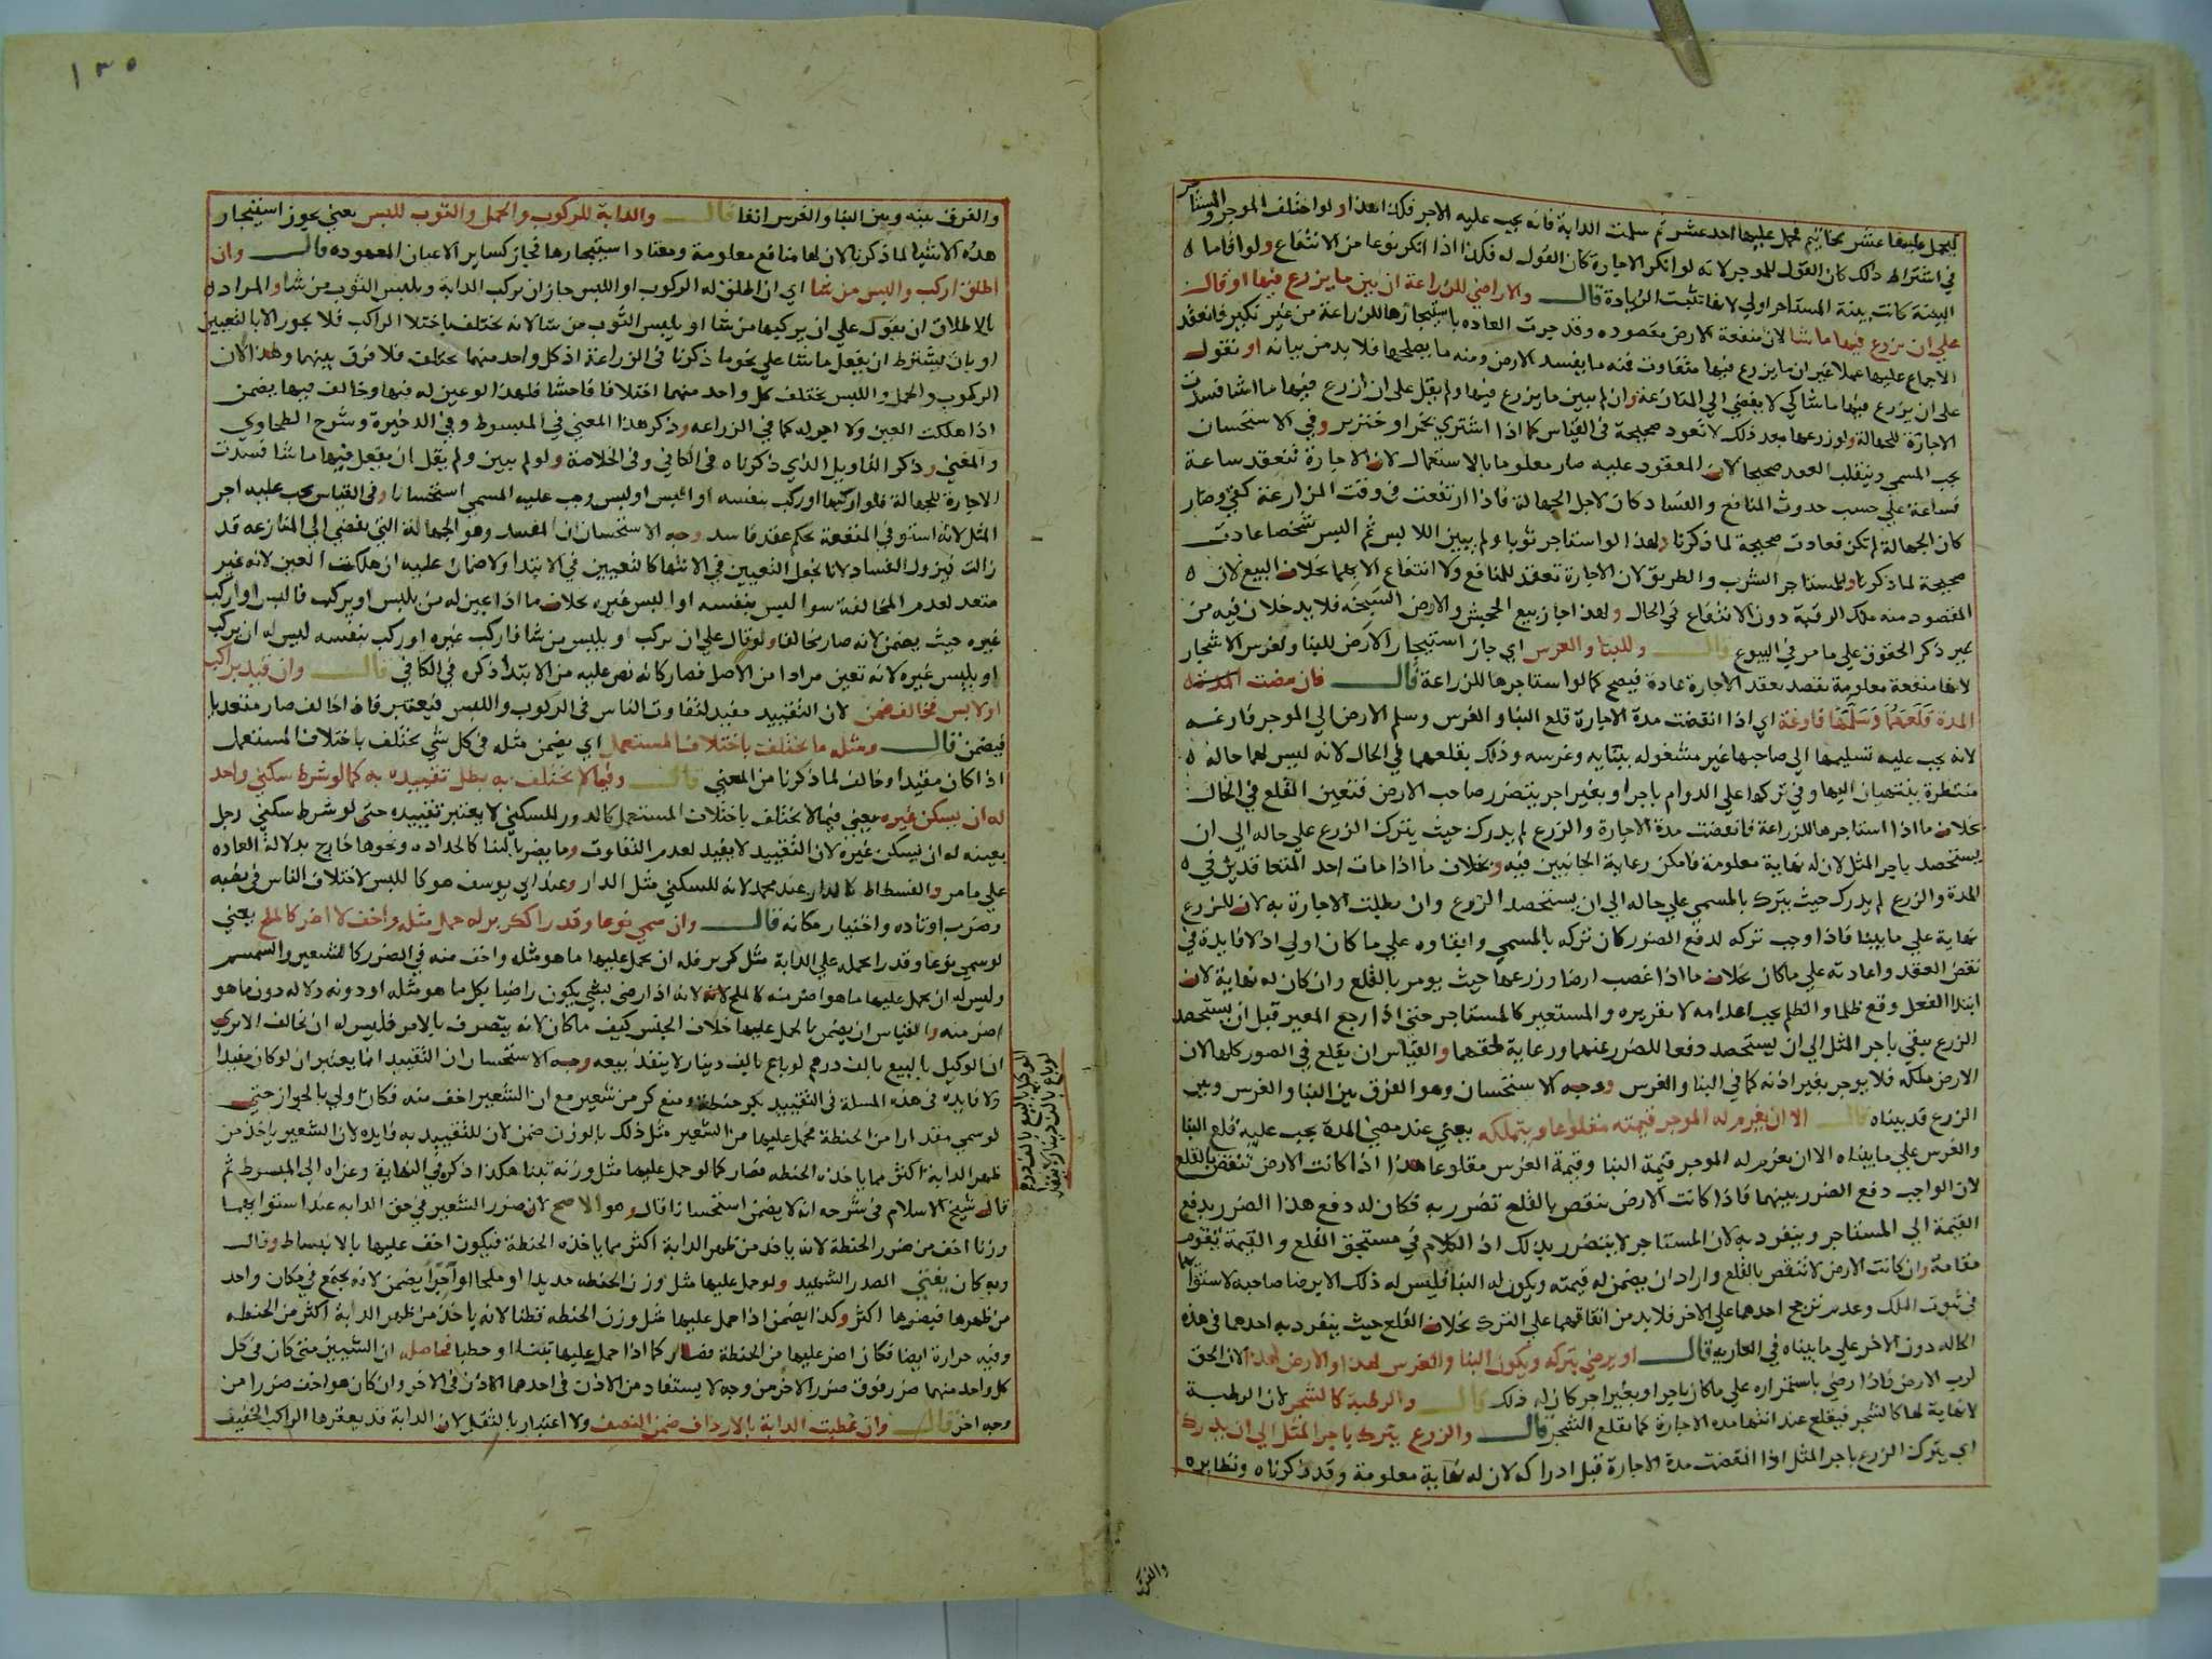 ليحمل عليها عشر مخاتيم فحمل عليها احد عشر ثم سلمت الدابة فانه يجب عليه الاجر فكذا هذا ولو اختلف الموجر والمستاجر
في اشتراط ذلك كان القول للموجر لانه لو انكر الاجارة كان القول له فكذا اذا انكر نوعا من الانتفاع ولو اقاما
البينة كانت بينة المستاجر اولي لانها تثبت الزيادة قال والاراضي للزراعة ان بين ما يزرع فيها او قال
علي ان يزرع فيها ما شا لان منفعة الارض مقصوده وقد جرت العاده باستيجارها للزراعة من غير نكير فانعقد
الاجماع عليها عملا غير ان ما يزرع فيها متفاوت فمنه ما يفسد الارض ومنه ما يصلحها فلا بد من بيانه او نقول
علي ان يزرع فيها ما شا كي لا يفضي الي المنازعة وان لم يبين ما يزرع فيها ولم يقل علي ان ازرع فيها ما اشا فسدت
الاجارة للجهالة ولو زرعها بعد ذلك لا تعود صحيحة في القياس كما اذا اشتري بخمر او خنزير وفي الاستحسان
يجب المسمي وينقلب العقد صحيحا لان المعقود عليه صار معلوما بالاستعمال لان الاجارة تنعقد ساعة
فساعة علي حسب حدوث المنافع والفساد كان لاجل الجهالة فاذا ارتفعت في وقت المزارعة كفي وصار
كان الجهالة لم تكن فعادت صحيحة لما ذكرنا ولهذا لو استاجر ثوبا ولم يبين اللابس ثم البس شخصا عادت
صحيحة لما ذكرنا وللمستاجر الشرب والطريق لان الاجارة تعقد للمنافع ولا انتفاع الا بهما بخلاف البيع لان
المقصود منه ملك الرقبة دون الانتفاع في الحال ولهذا جاز بيع الجحش والارض السبخه فلا يدخلان فيه من
غير ذكر الحقوق علي ما مر في البيوع قال وللبنا والغرس اي جاز استيجار الارض للبنا ولغرس الاشجار
لانها منفعة معلومة تقصد بعقد الاجارة عادة فيصح كما لو استاجرها للزراعة قال فان مضت المدة
المدة قلعهما وسلمها فارغة اي اذا انقضت مدة الاجارة قلع البنا والغرس وسلم الارض الي الموجر فارغه
لانه يجب عليه تسليمها الي صاحبها غير مشغوله ببنايه وغرسه وذلك بقلعهما في الحال لانه ليس لهما حالة
منتظرة ينتهيان اليها وفي تركهما علي الدوام باجر او بغير اجر يتضرر صاحب الارض فتعين القلع في الحال
بخلاف ما اذا استاجرها للزراعة فانقضت مدة الاجارة والزرع لم يدرك حيث يترك الزرع علي حاله الي ان
يستحصد باجر المثل لان له نهاية معلومة فامكن رعاية الجانبين فيه وبخلاف ما اذا مات احد المتعاقدين في
المدة والزرع لم يدرك حيث يترك بالمسمي علي حاله الي ان يستحصد الزرع وان بطلت الاجارة به لان للزرع
نهاية علي ما بينا فاذا وجب تركه لدفع الضرر كان تركه بالمسمي وابقاوه علي ما كان اولي اذ لا فايدة في
نقض العقد واعادته علي ما كان بخلاف ما اذا غصب ارضا وزرعها حيث يومر بالقلع وان كان له نهاية لان
ابتدا الفعل وقع ظلما والظلم يجب اعدامه لا تقريره والمستعير كالمستاجر حتي اذا رجع المعير قبل ان يستحصد
الزرع يبقي باجر المثل الي ان يستحصد دفعا للضرر عنهما ورعاية لحقهما والقياس ان يقلع في الصور كلها لان
الارض ملكه فلا يوجر بغير اذنه كما في البنا والغرس ووجه الاستحسان وهو الفرق بين البنا والغرس وبين
الزرع قد بيناه قال الا ان يغرم له الموجر قيمته مقلوعا ويتملكه يعني عند مضي المدة يجب عليه قلع البنا
والغرس علي ما بيناه الا ان يغرم له الموجر قيمة البنا وقيمة الغرس مقلوعا هذا اذا كانت الارض تنقص بالقلع
لان الواجب دفع الضرر بينهما فاذا كانت الارض تنقص بالقلع تضرر به فكان له دفع هذا الضرر بدفع
القيمة الي المستاجر وينفرد به لان المستاجر لا يتضرر بذلك اذ الكلام في مستحق القلع والقيمة تقوم
مقامه وان كانت الارض لا تنقص بالقلع واراد ان يضمن له قيمته ويكون له البنا فليس له ذلك الا برضا صاحبه لاستوايهما
في ثبوت الملك وعدم ترجح احدهما علي الاخر فلا بد من اتفاقهما علي الترك بخلاف القلع حيث ينفرد به احدهما في هذه
الحاله دون الاخر علي ما بيناه في العاريه قال او يرضي بتركه ويكون البنا والغرس لهذا والارض لهذا لان الحق
لرب الارض فاذا رضي باستمراره علي ما كان باجر او بغير اجر كان له ذلك قال والرطبة كالشجر لان الرطبة
لا نهاية لها كالشجر فيقلع عند انتها مده الاجارة كما يقلع الشجر قال والزرع يترك باجر المثل الي ان يدرك
اي يترك الزرع باجر المثل اذا انقضت مدة الاجارة قبل ادراكه لان له نهاية معلومة وقد ذكرناه ونظايره
والفرق
١٣٥
والفرق بينه وبين البنا والغرس انفا قال والدابة للركوب والحمل والثوب للبس يعني يجوز استيجار
هذه الاشيا لما ذكرنا لان لها منافع معلومة ومعتاد استيجارها فجاز كساير الاعيان المعهوده قال وان
اطلق اركب والبس من شا اي ان اطلق له الركوب او اللبس جاز ان يركب الدابة ويلبس الثوب من شا والمراد
بالاطلاق ان يقول علي ان يركبها من شا او يلبس الثوب من شا لانه يختلف باختلاف الراكب فلا يجوز الا بالتعيين
او بان يشترط ان يفعل ما شا علي نحو ما ذكرنا في الزراعة اذ كل واحد منهما يختلف فلا فرق بينهما وهذا لان
الركوب والحمل واللبس يختلف كل واحد منهما اختلافا فاحشا فلهذا لو عين له فيها وخالف فيها يضمن
اذا هلكت العين ولا اجر له كما في الزراعه وذكر هذا المعني في المبسوط وفي الدخيرة وشرح الطحاوي
والمغني وذكر التاويل الذي ذكرناه في الكافي وفي الخلاصة ولو لم يبين ولم يقل ان يفعل فيها ما شا فسدت
الاجارة للجهالة فلو اركبها او ركب بنفسه او البس او لبس وجب عليه المسمي استحسانا وفي القياس يجب عليه اجر
المثل لانه استوفي المنفعة بحكم عقد فاسد وجه الاستحسان ان المفسد وهو الجهالة التي تفضي الي المنازعه قد
زالت فيزول الفساد لانا نجعل التعيين في الانتها كالتعيين في الابتدا ولا ضمان عليه ان هلكت العين لانه غير
متعد لعدم المخالفة سوا لبس بنفسه او البس غيره بخلاف ما اذا عين له من يلبس او يركب فالبس او اركب
غيره حيث يضمن لانه صار مخالفا ولو قال علي ان يركب او يلبس من شا فاركب غيره او ركب بنفسه ليس له ان يركب
او يلبس غيره لانه تعين مرادا من الاصل فصار كانه نص عليه من الابتدا ذكره في الكافي قال وان قيد براكب
او لابس فخالف ضمن لان التقييد مفيد لتفاوت الناس في الركوب واللبس فيعتبر فاذا خالف صار متعديا
فيضمن قال ومثله ما يختلف باختلاف المستعمل اي يضمن مثله في كل شي يختلف باختلاف المستعمل
اذا كان مقيدا وخالف لما ذكرنا من المعني قال وفيما لا يختلف به بطل تقييده به كما لو شرط سكني واحد
له ان يسكن غيره يعني فيما لا يختلف باختلاف المستعمل كالدور للسكني لا يعتبر تقييده حتي لو شرط سكني رجل
بعينه له ان يسكن غيره لان التقييد لا يفيد لعدم التفاوت وما يضر بالبنا كالحداده ونحوها خارج بدلالة العاده
علي ما مر والفسطاط كالدار عند محمد لانه للسكني مثل الدار وعند ابي يوسف هو كاللبس لاختلاف الناس في نصبه
وضرب اوتاده واختيار مكانه قال وان سمي نوعا وقدرا ككر بر له حمل مثله واخف لا اضر كالملح يعني
لو سمي نوعا وقدرا يحمله علي الدابة مثل كر بر فله ان يحمل عليها ما هو مثله واخف منه في الضرر كالشعير والسمسم
وليس له ان يحمل عليها ما هو اضر منه كالملح لانه اذا رضي بشي يكون راضيا بكل ما هو مثله او دونه دلالة دون ما هو
اضر منه والقياس ان يضمن بالحمل عليها خلاف الجنس كيف ما كان لانه يتصرف بالامر فليس له ان يخالف الا تري
ان الوكيل بالبيع بالف درهم لو باع بالف دينار لا ينفذ بيعه وجه الاستحسان ان التقييد انما يعتبر ان لو كان مفيدا
ولا فايده في هذه المسلة في التقييد بكر حنطة ومنع كر من شعير مع ان الشعير اخف منه فكان اولي بالجواز حتي
لو سمي مقدارا من الحنطة فحمل عليها من الشعير مثل ذلك بالوزن ضمن لان للتقييد به فايده لان الشعير ياخذ من
ظهر الدابة اكثر مما ياخذه الحنطه فصار كما لو حمل عليها مثل وزنه تبنا هكذا ذكره في النهاية وعزاه الي المبسوط ثم
قال شيخ الاسلام في شرحه انه لا يضمن استحسانا قال وهو الاصح لان ضرر الشعير في حق الدابه عند استوايهما
وزنا اخف من ضرر الحنطة لانه ياخذ من ظهر الدابة اكثر مما ياخذه الحنطة فيكون اخف عليها بالانبساط وقال
وبه كان يفتي الصدر الشهيد ولو حمل عليها مثل وزن الحنطه حديدا او ملحا او اجرا يضمن لانه يجتمع في مكان واحد
من ظهرها فيضرها اكثر وكذا يضمن اذا حمل عليها مثل وزن الحنطه قطنا لانه ياخذ من ظهر الدابة اكثر من الحنطه
وفيه حرارة ايضا فكان اضر عليها من الحنطة فصار كما اذا حمل عليها تبنا او حطبا فحاصله ان الشيين متي كان في كل
كل واحد منهما ضرر فوق ضرر الاخر من وجه لا يستفاد من الاذن في احدهما الاذن في الاخر وان كان هو اخف ضررا من
وجه اخر قال وان عطبت الدابة بالارداف ضمن النصف ولا اعتبار بالثقل لان الدابة قد يعقرها الراكب الخفيف
الوكيل بالبيع بالف درهم
لو باع بالف دينار لا ينفذ